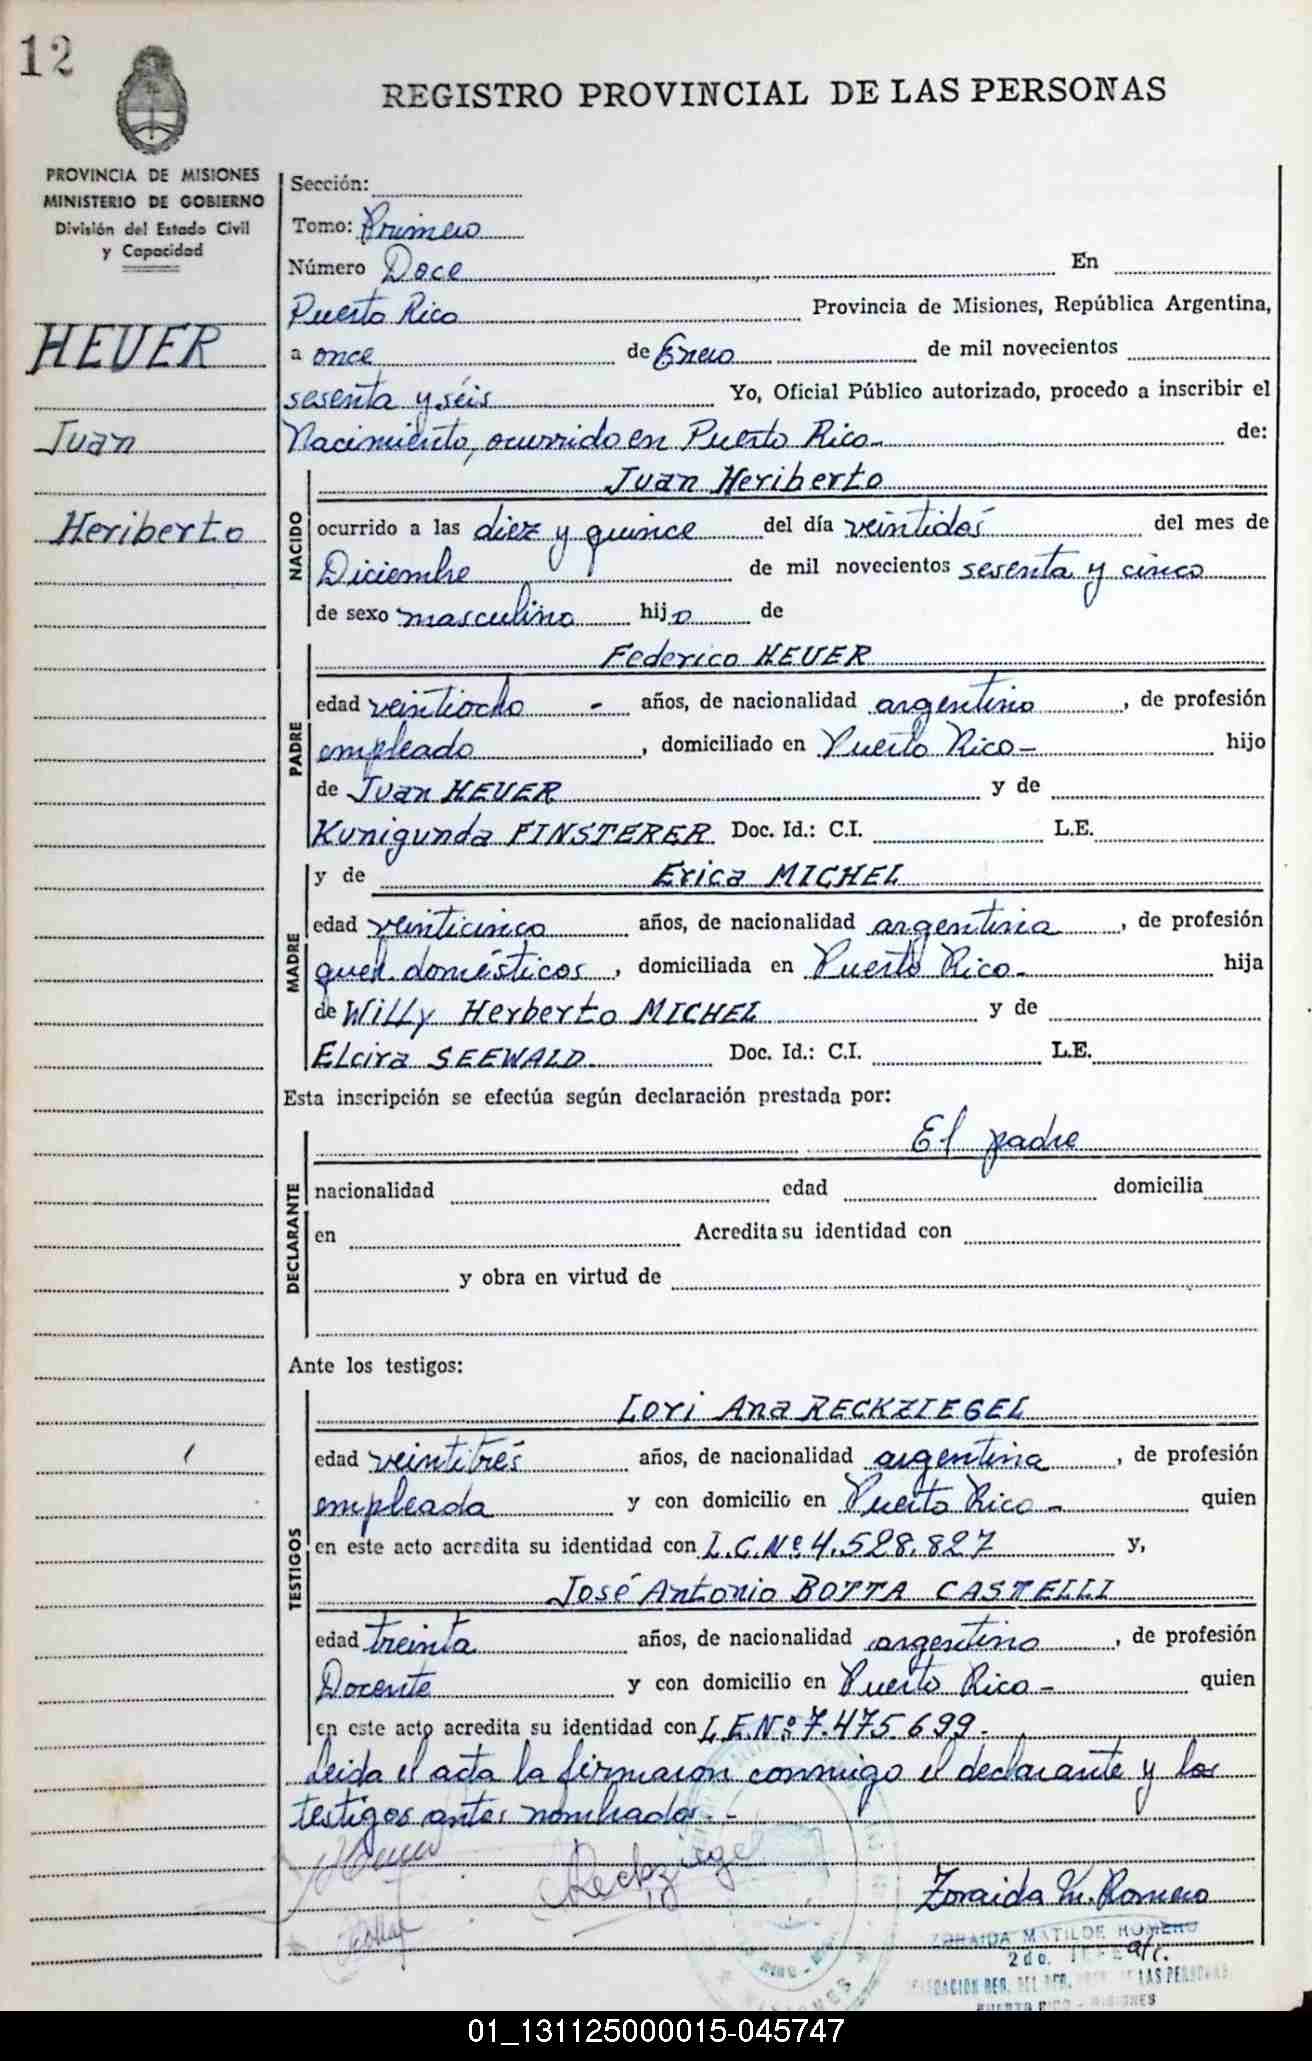 12
REGISTRO PROVINCIAL DE LAS PERSONAS
PROVINCIA DE MISIONES
MINISTERIO DE GOBIERNO
División del Estado Civil
y Capacidad
HEUER
Juan
Heriberto
Sección:
Tomo: Primero
Número Doce En
Puerto Rico Provincia de Misiones, República Argentina,
a once de Enero de mil novecientos
sesenta y séis Yo, Oficial Público autorizado, procedo a inscribir el
Nacimiento, ocurrido en Puerto Rico- de:
NACIDO
Juan Heriberto
ocurrido a las diez y quince del día veintidós del mes de
Diciembre de mil novecientos sesenta y cinco
de sexo masculino hijo de
PADRE
Federico HEUER
edad veintiocho - años, de nacionalidad argentino, de profesión
empleado, domiciliado en Puerto Rico- hijo
de Juan HEUER y de
Kunigunda FINSTERER Doc. Id.: C.I. L.E.
MADRE
y de Erica MICHEL
edad veinticinco años, de nacionalidad argentina, de profesión
queh. domésticos, domiciliada en Puerto Rico- hija
de Willy Herberto MICHEL y de
Elcira SEEWALD Doc. Id.: C.I. L.E.
Esta inscripción se efectúa según declaración prestada por:
DECLARANTE
El padre
nacionalidad edad domicilia
en Acredita su identidad con
y obra en virtud de
Ante los testigos:
TESTIGOS
Lori Ana RECKZIEGEL
edad veintitrés años, de nacionalidad argentina, de profesión
empleada y con domicilio en Puerto Rico- quien
en este acto acredita su identidad con L.C.Nº 4.528.827 y,
José Antonio BOTTA CASTELLI
edad treinta años, de nacionalidad argentino, de profesión
Docente y con domicilio en Puerto Rico- quien
en este acto acredita su identidad con L.E.Nº 7.475.699.
Leida el acta la firmaron conmigo el declarante y los
testigos antes nombrados.-
Reckziegel
Zoraida M. Romero
ZORAIDA MATILDE ROMERO
2do. JEFE
DE LAS PERSONAS
PUERTO RICO - MISIONES
01_131125000015-045747